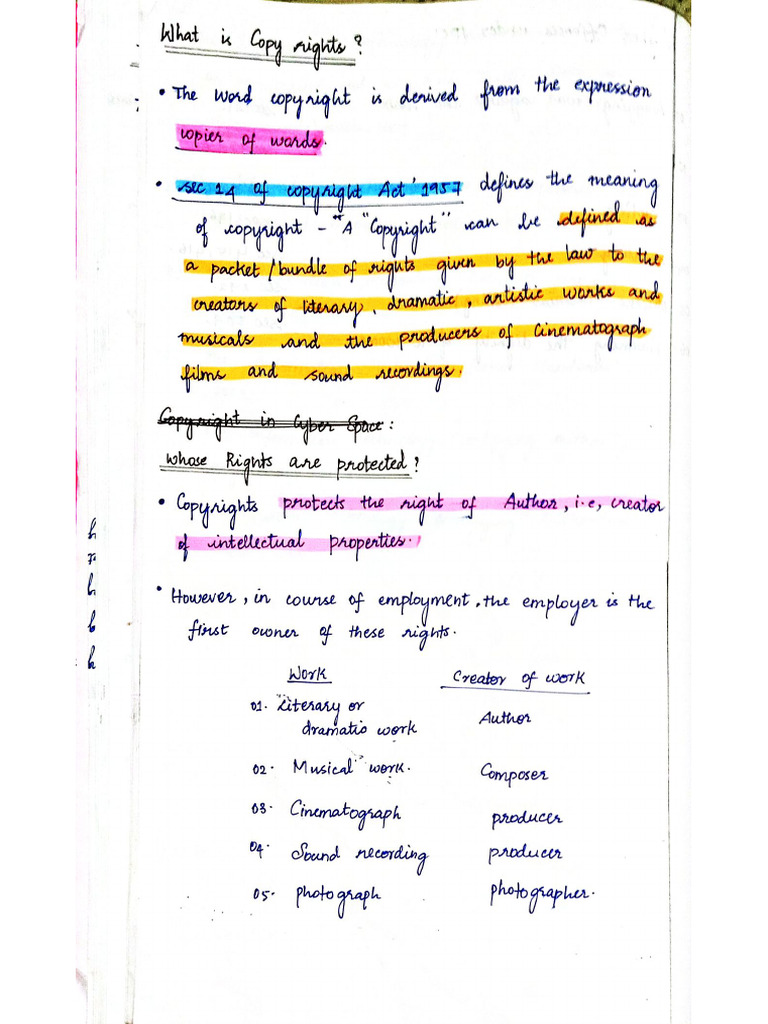 What is Copy rights?
• The word copyright is derived from the expression
copier of words.
• sec 14 of copyright Act' 1957 defines the meaning
of copyright - "A "Copyright" can be defined as
a packet/bundle of rights given by the law to the
creators of literary, dramatic, artistic works and
musicals and the producers of Cinematograph
films and sound recordings.
Copyright in Cyber Space:
whose Rights are protected?
• Copyrights protects the right of Author, i.e, creator
of intellectual properties.
• However, in course of employment, the employer is the
first owner of these rights.
Work Creator of work
01. Literary or
dramatic work Author
02. Musical work. Composer
03. Cinematograph producer
04. Sound recording producer
05. photograph photographer.